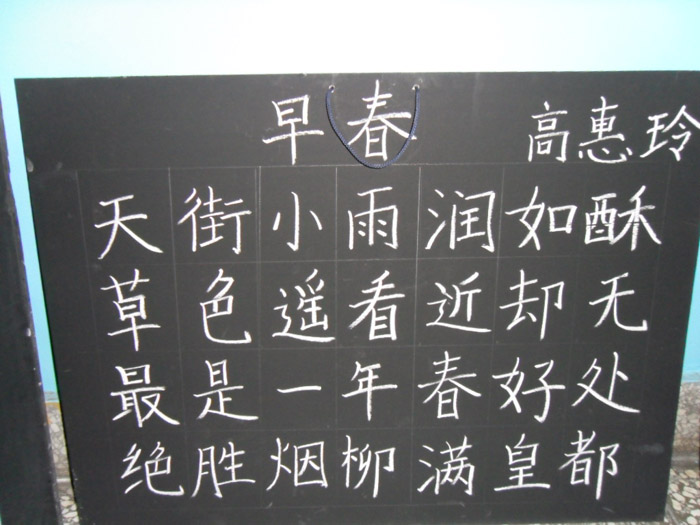 早春 高惠玲
天街小雨润如酥
草色遥看近却无
最是一年春好处
绝胜烟柳满皇都